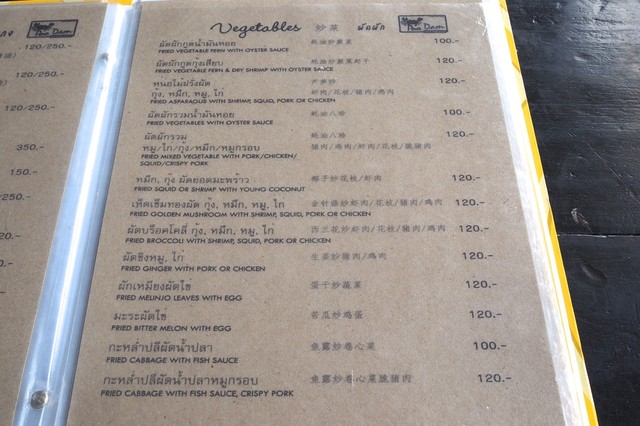 Vegetables 炒菜 ผัดผัก
ผัดผักกูดน้ำมันหอย 蚝油炒蕨菜 100.-
FRIED VEGETABLE FERN WITH OYSTER SAUCE
ผัดผักกูดกุ้งเสียบ 蚝油炒蕨菜虾干 120.-
FRIED VEGETABLE FERN & DRY SHRIMP WITH OYSTER SAUCE
หน่อไม้ฝรั่งผัด 芦笋炒
กุ้ง, หมึก, หมู, ไก่ 虾肉/花枝/猪肉/鸡肉 120.-
FRIED ASPARAGUS WITH SHRIMP, SQUID, PORK OR CHICKEN
ผัดผักรวมน้ำมันหอย 蚝油八珍 100.-
FRIED VEGETABLES WITH OYSTER SAUCE
ผัดผักรวม 蚝油八珍 120.-
หมู/ไก่/กุ้ง/หมึก/หมูกรอบ 猪肉/鸡肉/虾肉/花枝/脆猪肉
FRIED MIXED VEGETABLE WITH PORK/CHICKEN/
SQUID/CRISPY PORK
หมึก, กุ้ง ผัดยอดมะพร้าว 椰子炒花枝/虾肉 120.-
FRIED SQUID OR SHRIMP WITH YOUNG COCONUT
เห็ดเข็มทองผัด กุ้ง, หมึก, หมู, ไก่ 金针菇炒虾肉/花枝/猪肉/鸡肉 120.-
FRIED GOLDEN MUSHROOM WITH SHRIMP, SQUID, PORK OR CHICKEN
ผัดบร็อคโคลี่ กุ้ง, หมึก, หมู, ไก่ 西兰花炒虾肉/花枝/猪肉/鸡肉 120.-
FRIED BROCCOLI WITH SHRIMP, SQUID, PORK OR CHICKEN
ผัดขิงหมู, ไก่ 生姜炒猪肉/鸡肉 120.-
FRIED GINGER WITH PORK OR CHICKEN
ผักเหมียงผัดไข่ 蛋干炒蔬菜 120.-
FRIED MELINJO LEAVES WITH EGG
มะระผัดไข่ 苦瓜炒鸡蛋 120.-
FRIED BITTER MELON WITH EGG
กะหล่ำปลีผัดน้ำปลา 鱼露炒卷心菜 100.-
FRIED CABBAGE WITH FISH SAUCE
กะหล่ำปลีผัดน้ำปลาหมูกรอบ 鱼露炒卷心菜脆猪肉 120.-
FRIED CABBAGE WITH FISH SAUCE, CRISPY PORK
120/250.-
120/250.-
120/250.-
350.-
150.-
120.-